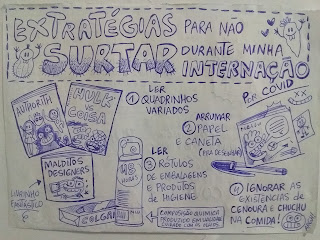 EXTRATÉGIAS PARA NÃO
SURTAR DURANTE MINHA
INTERNAÇÃO
POR COVID
LER
① QUADRINHOS
VARIADOS
AUTHORITH
HULK
COISA
MALDITOS
DESIGNERS
LIVRINHO
FANTÁSTICO
ARRUMAR
② PAPEL
E CANETA
(PRA DESENHAR)
LER
③ RÓTULOS
DE EMBALAGENS
E PRODUTOS
DE HIGIENE
COLGATE
COMPOSIÇÃO QUÍMICA
PRODUZIDO EM
CUIDADO COM OS OLHOS
④ IGNORAR AS
EXISTÊNCIAS DE
CENOURA E CHUCHU
NA COMIDA!